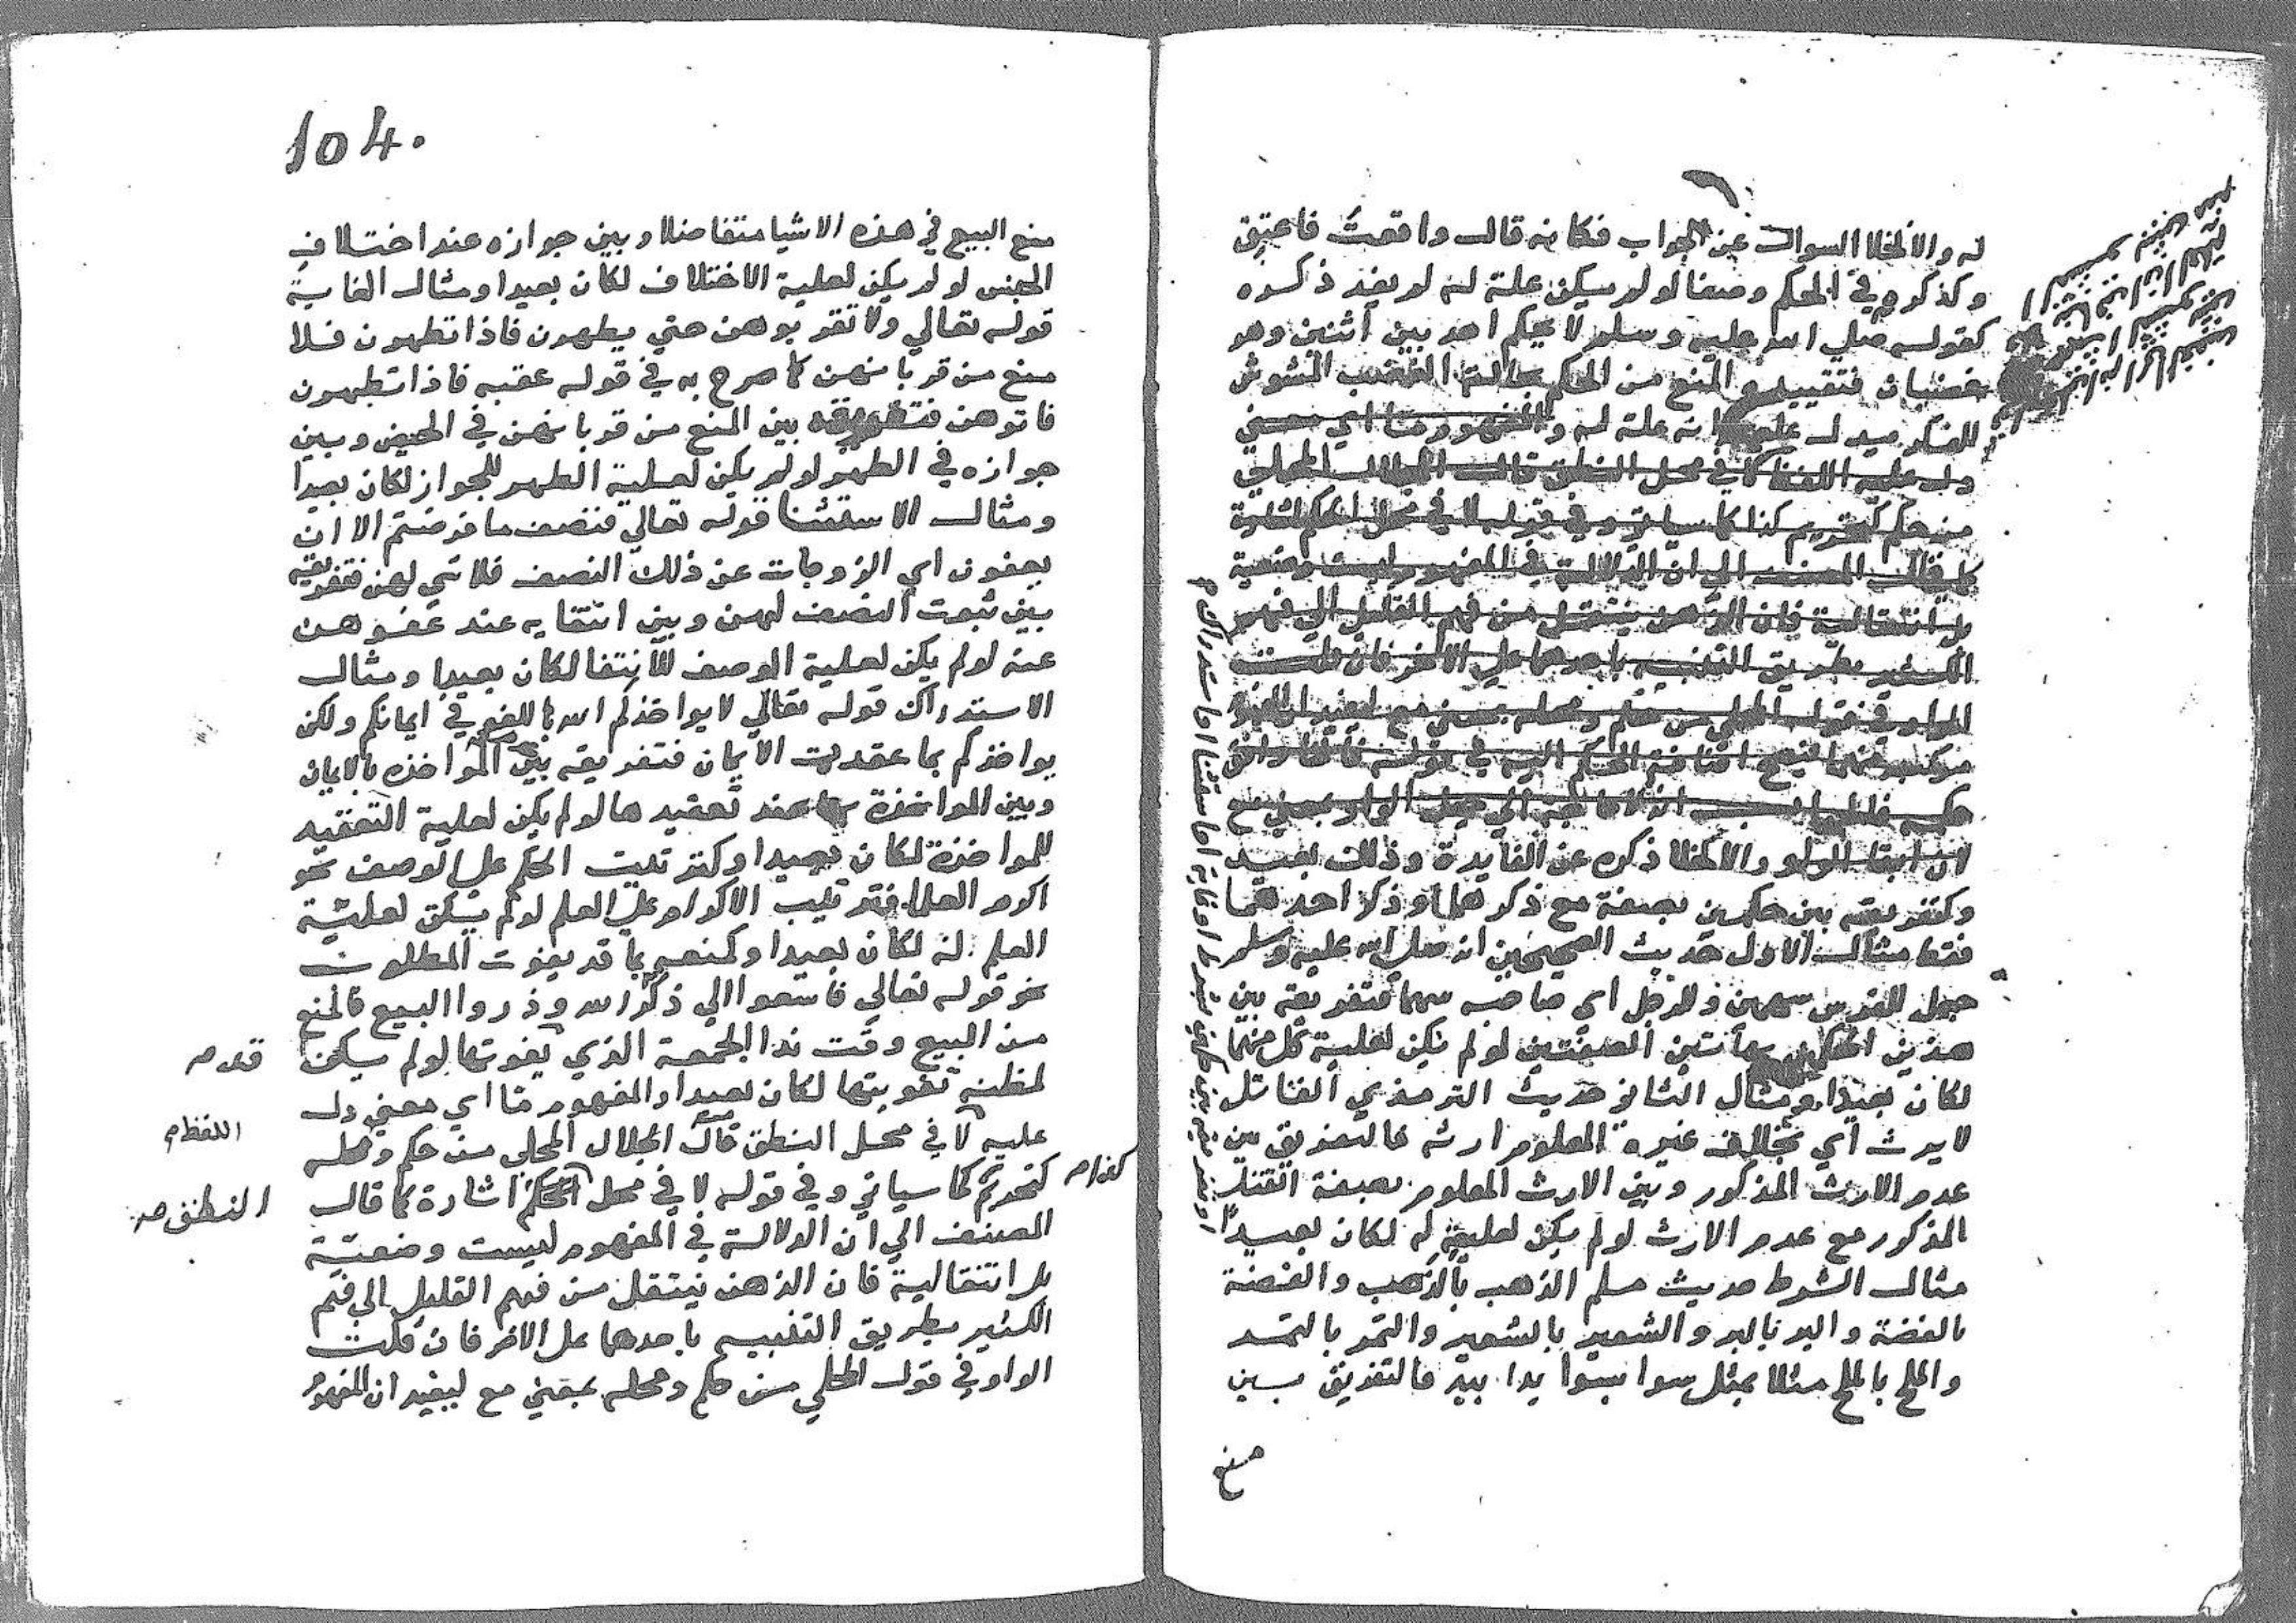 له والالخلا السوال عن الجواب فكانه قال واقعت فاعتق
وكذكره في الحكم وصفا لو لم يكن علة له لم يفد ذكره
كقوله صلي الله عليه وسلم لا يحكم احد بين اثنين وهو
غضبان فتقييده المنع من الحكم بحالة الغضب المشوش
للفكر يدل علي انه علة له والمفهوم ما اي معني
دل عليه اللفظ لا في محل النطق قال الجلال المحلي
من حكم كتحريم كذا كما سياتي وفي قوله لا في محل الحكم اشارة
كما قال المصنف الي ان الدلالة في المفهوم ليست وضعية
بل انتقالية فان الذهن ينتقل من فهم القليل الي فهم
الكثير بطريق التنبيه باحدهما علي الاخر فان قلت
الواو في قول المحلي من حكم ومحله بمعني مع ليفيد ان المفهوم
مركب منهما اضافة الحكم اليه في قوله
حكمه الي جعل الواو بمعني مع
والالخلا ذكره عن الفايدة وذلك بعيد
وكتفريقه بين حكمين بصفة مع ذكرهما او ذكر احدهما
فقط مثال الاول حديث الصحيحين انه صلي الله عليه وسلم
جعل للفرس سهمين وللرجل اي صاحبه سهما فتفريقه بين
هذين الحكمين بهاتين الصفتين لو لم يكن لعلية كل منهما
لكان بعيدا ومثال الثاني حديث الترمذي القاتل
لا يرث اي بخلاف غيره المعلوم ارثه فالتفريق بين
عدم الارث المذكور وبين الارث المعلوم بصفة القتل
المذكور مع عدم الارث لو لم يكن لعليته له لكان بعيدا
مثال الشرط حديث مسلم الذهب بالذهب والفضة
بالفضة والبر بالبر والشعير بالشعير والتمر بالتمر
والملح بالملح مثلا بمثل سوا بسوا يدا بيد فالتفريق بين
منع
او تفريقه بين حكمين بشرط او غاية او استثنا او استدراك م
104.
منع البيع في هذه الاشيا متفاضلا وبين جوازه عند اختلاف
الجنس لو لم يكن لعلية الاختلاف لكان بعيدا ومثال الغاية
قوله تعالي ولا تقربوهن حتي يطهرن فاذا تطهرن فلا
منع من قربانهن كما صرح به في قوله عقبه فاذا تطهرن
فاتوهن فتفريقه بين المنع من قربانهن في الحيض وبين
جوازه في الطهر لو لم يكن لعلية الطهر للجواز لكان بعيدا
ومثال الاستثنا قوله تعالي فنصف ما فرضتم الا ان
يعفون اي الزوجات عن ذلك النصف فلا شي لهن فتفريقه
بين ثبوت النصف لهن وبين انتفايه عند عفوهن
عنه لو لم يكن لعلية الوصف للانتفا لكان بعيدا ومثال
الاستدراك قوله تعالي لا يواخذكم الله باللغو في ايمانكم ولكن
يواخذكم بما عقدتم الايمان فتفريقه بين المواخذه بالايمان
وبين المواخذة عند تعقيدها لو لم يكن لعلية التعقيد
للمواخذة لكان بعيدا وكترتيب الحكم علي الوصف نحو
اكرم العلما فترتيب الاكرام علي العلم لو لم يكن لعلية
العلم له لكان بعيدا وكمنعه مما قد يفوت المطلوب
نحو قوله تعالي فاسعوا الي ذكر الله وذروا البيع فالمنع
من البيع وقت ندا الجمعة الذي يفوتها لو لم يكن
لمظنة تفويتها لكان بعيدا والمفهوم ما اي معني دل
عليه لا في محل النطق قال الجلال المحلي من حكم ومحله
كتحريم كما سياتي وفي قوله لا في محل الحكم اشارة كما قال
المصنف الي ان الدلالة في المفهوم ليست وضعية
بل انتقالية فان الذهن ينتقل من فهم القليل الي فهم
الكثير بطريق التنبيه باحدهما علي الاخر فان قلت
الواو في قول المحلي من حكم ومحله بمعني مع ليفيد ان المفهوم
قد صـ
اللفظ م
كذا صـ
النطق صـ